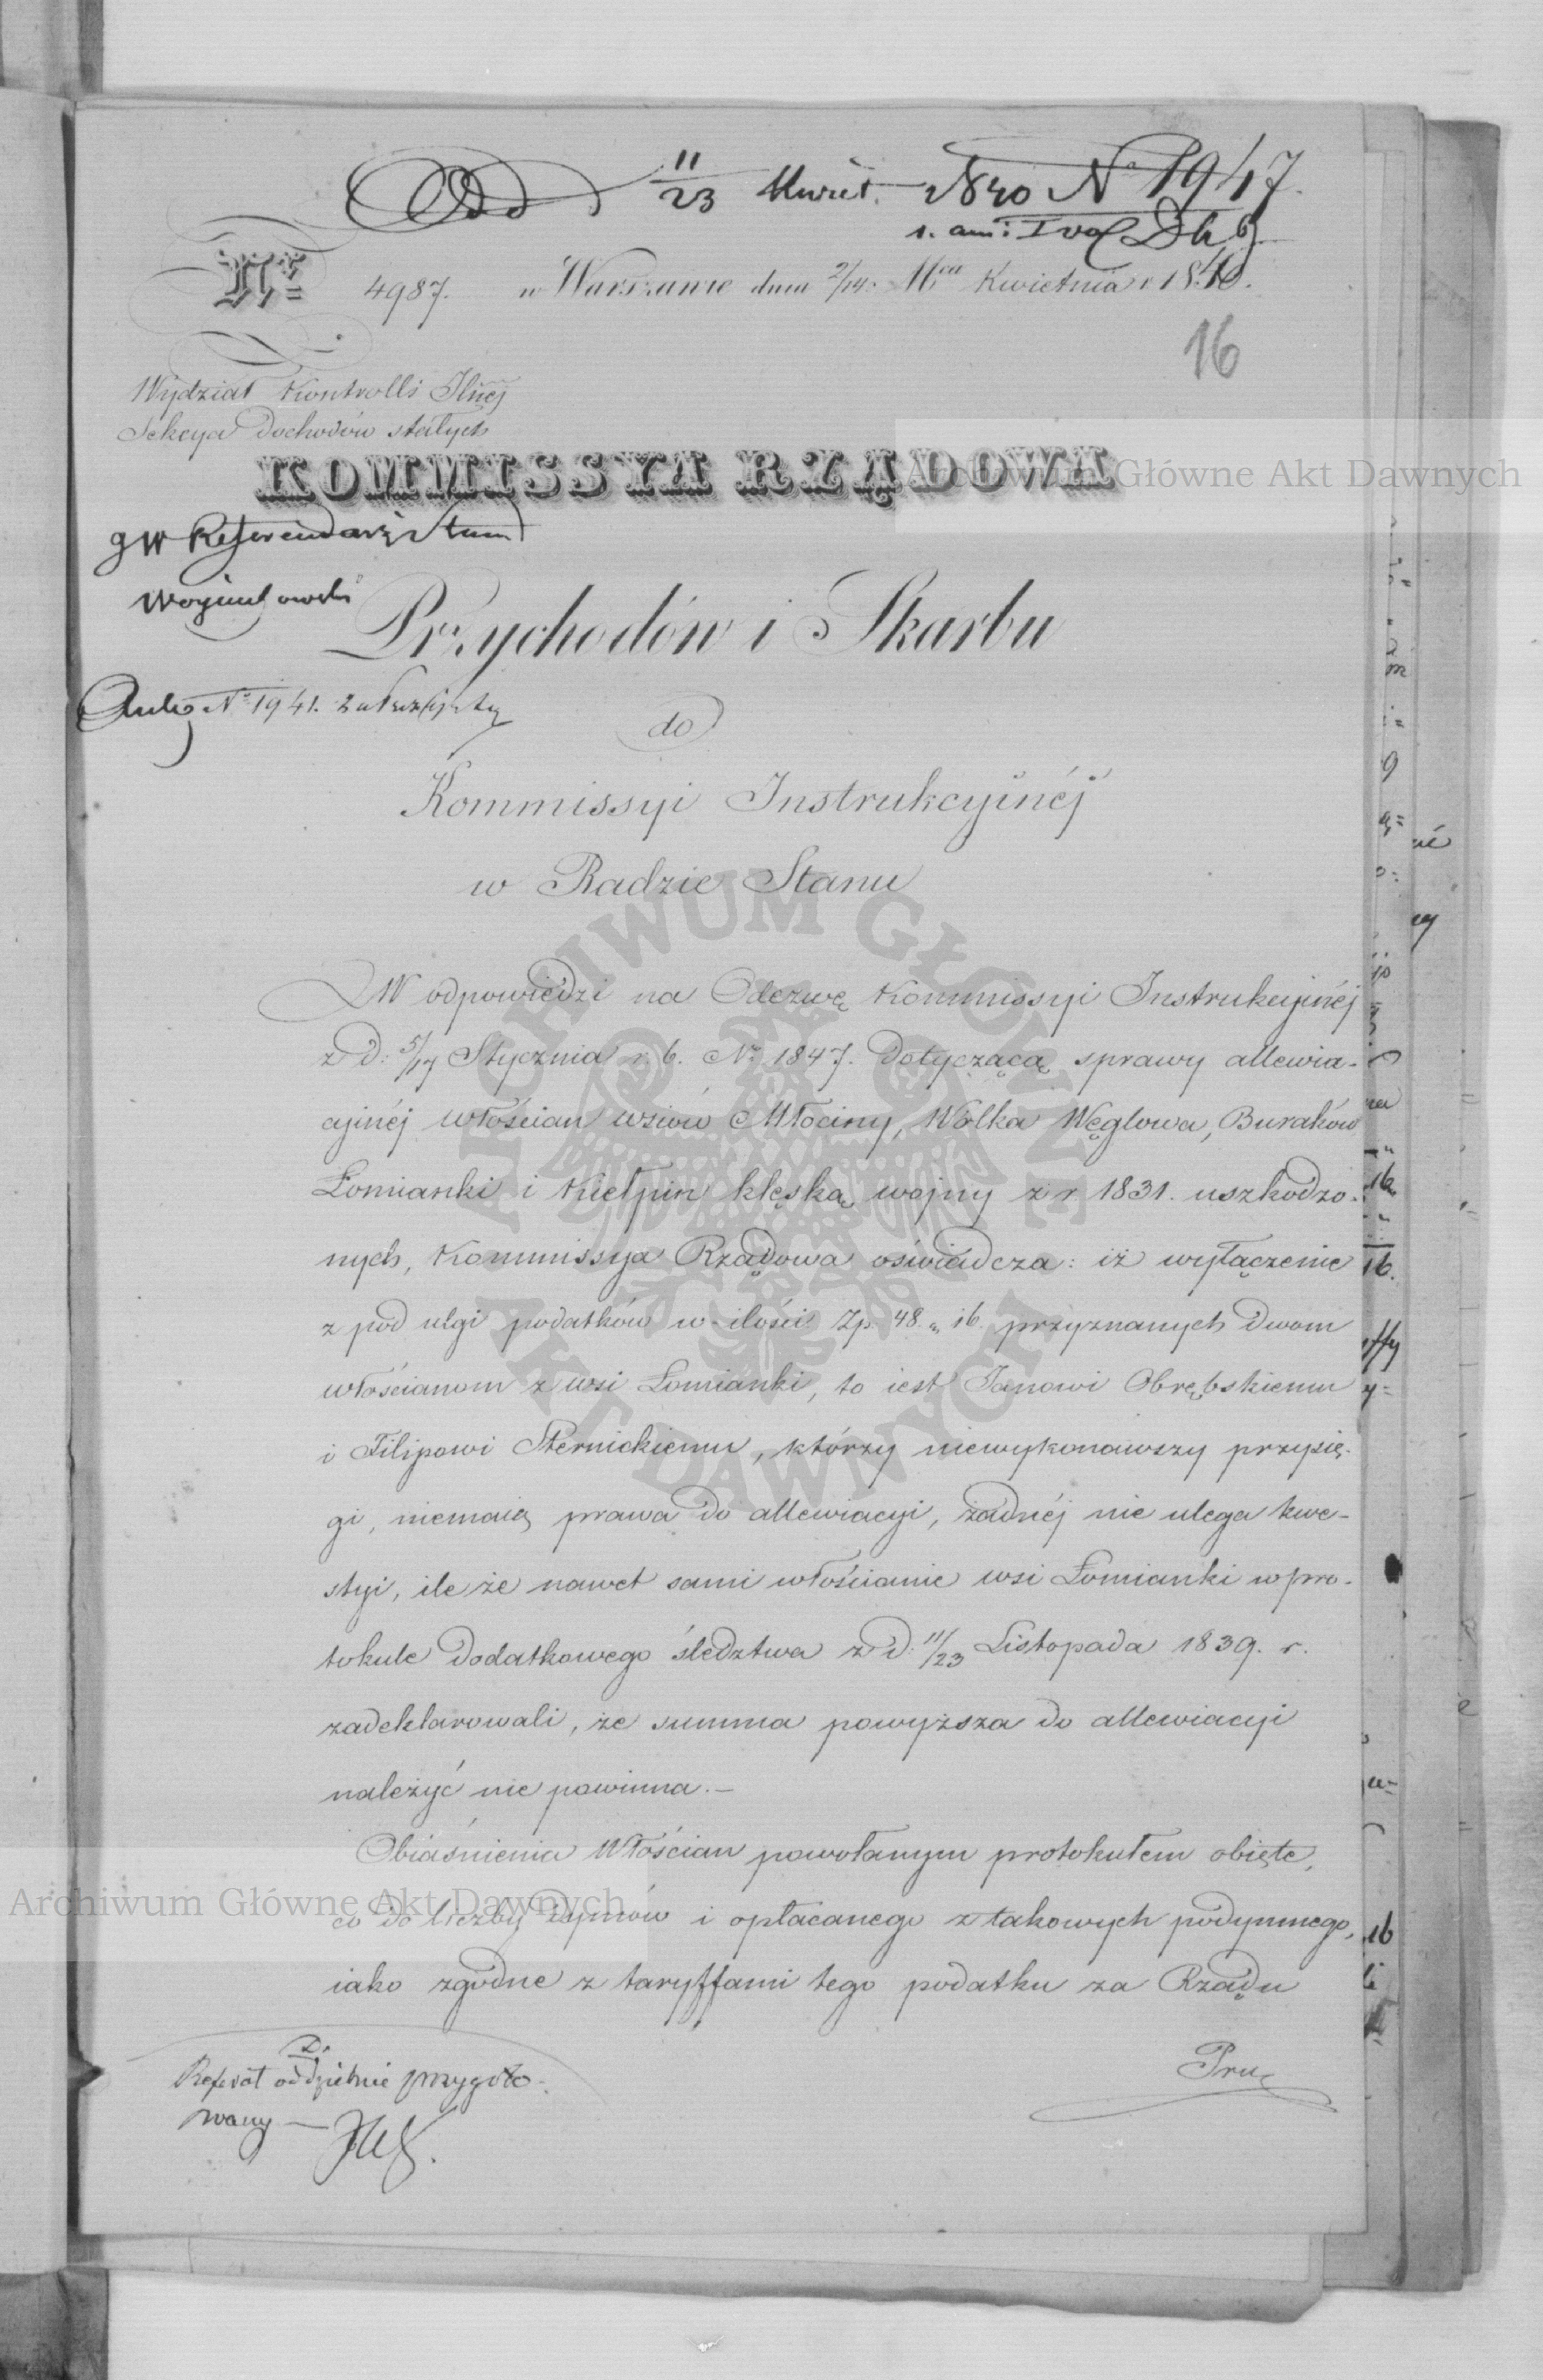 Odd 11/23 Kwiet. 1840 N 1947.
Nr 4987. w Warszawie dnia 2/14 Mca Kwietnia r 1840.
16
Wydział Kontrolli Jlnéj
Sekcya Dochodów stałych
KOMMISSYA RZĄDOWA
JW Referendarz Stanu
Woyciechowski
Przychodów i Skarbu
N 1941.
do
Kommissyi Instrukcyinéj
w Radzie Stanu
W odpowiedzi na Odezwę Kommissyi Instrukcyinéj
z d: 5/17 Stycznia r. b. Nr 1847. dotyczącą sprawy allewia-
cyjnéj włościan wsiów Młociny, Wólka Węglowa, Buraków
Łomianki i Kiełpin klęską wojny z r. 1831. uszkodzo-
nych, Kommissya Rządowa oświadcza: iż wyłączenie
z pod ulgi podatków w ilości Zp. 48 „ 16. przyznanych dwom
włościanom z wsi Łomianki, to iest Janowi Obrębskiemu
i Filipowi Sternickiemu, którzy niewykonawszy przysię-
gi, niemaią prawa do allewiacyi, żadnéj nie ulega kwe-
styi, ile że nawet sami włościanie wsi Łomianki w pro-
tokule dodatkowego śledztwa z d: 11/23 Listopada 1839. r.
zadeklarowali, że summa powyższa do allewiacyi
należyć nie powinna.—
Obiaśnienia Włościan powołanym protokułem obięte,
co do liczby dymów i opłacanego z takowych podymnego,
iako zgodne z taryffami tego podatku za Rządu
Pru
Referat oddzielnie przygoto-
wany —
Archiwum Główne Akt Dawnych
Archiwum Główne Akt Dawnych
ARCHIWUM GŁÓWNE
AKT DAWNYCH